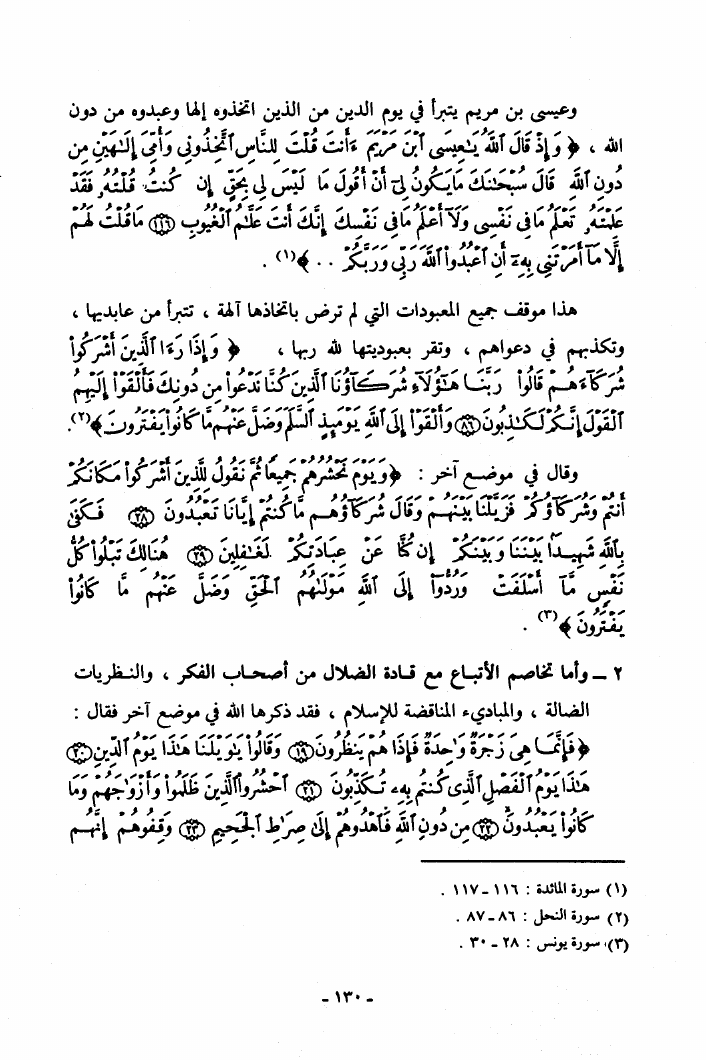 وعيسى بن مريم يتبرأ في يوم الدين من الذين اتخذوه إلها وعبدوه من دون
الله ، ﴿ وَإِذْ قَالَ ٱللَّهُ يَٰعِيسَى ٱبْنَ مَرْيَمَ ءَأَنتَ قُلْتَ لِلنَّاسِ ٱتَّخِذُونِى وَأُمِّىَ إِلَٰهَيْنِ مِن
دُونِ ٱللَّهِ قَالَ سُبْحَٰنَكَ مَا يَكُونُ لِىٓ أَنْ أَقُولَ مَا لَيْسَ لِى بِحَقٍّ إِن كُنتُ قُلْتُهُۥ فَقَدْ
عَلِمْتَهُۥ تَعْلَمُ مَا فِى نَفْسِى وَلَآ أَعْلَمُ مَا فِى نَفْسِكَ إِنَّكَ أَنتَ عَلَّٰمُ ٱلْغُيُوبِ ۝١١٦ مَا قُلْتُ لَهُمْ
إِلَّا مَآ أَمَرْتَنِى بِهِۦٓ أَنِ ٱعْبُدُوا۟ ٱللَّهَ رَبِّى وَرَبَّكُمْ . . ﴾(١) .
هذا موقف جميع المعبودات التي لم ترض باتخاذها آلهة ، تتبرأ من عابديها ،
وتكذبهم في دعواهم ، وتقر بعبوديتها لله ربها ، ﴿ وَإِذَا رَءَا ٱلَّذِينَ أَشْرَكُوا۟
شُرَكَآءَهُمْ قَالُوا۟ رَبَّنَا هَٰٓؤُلَآءِ شُرَكَآؤُنَا ٱلَّذِينَ كُنَّا نَدْعُوا۟ مِن دُونِكَ فَأَلْقَوْا۟ إِلَيْهِمُ
ٱلْقَوْلَ إِنَّكُمْ لَكَٰذِبُونَ ۝٨٦ وَأَلْقَوْا۟ إِلَى ٱللَّهِ يَوْمَئِذٍ ٱلسَّلَمَ وَضَلَّ عَنْهُم مَّا كَانُوا۟ يَفْتَرُونَ ﴾(٢).
وقال في موضع آخر : ﴿ وَيَوْمَ نَحْشُرُهُمْ جَمِيعًا ثُمَّ نَقُولُ لِلَّذِينَ أَشْرَكُوا۟ مَكَانَكُمْ
أَنتُمْ وَشُرَكَآؤُكُمْ فَزَيَّلْنَا بَيْنَهُمْ وَقَالَ شُرَكَآؤُهُم مَّا كُنتُمْ إِيَّانَا تَعْبُدُونَ ۝٢٨ فَكَفَىٰ
بِٱللَّهِ شَهِيدًۢا بَيْنَنَا وَبَيْنَكُمْ إِن كُنَّا عَنْ عِبَادَتِكُمْ لَغَٰفِلِينَ ۝٢٩ هُنَالِكَ تَبْلُوا۟ كُلُّ
نَفْسٍ مَّآ أَسْلَفَتْ وَرُدُّوٓا۟ إِلَى ٱللَّهِ مَوْلَىٰهُمُ ٱلْحَقِّ وَضَلَّ عَنْهُم مَّا كَانُوا۟
يَفْتَرُونَ ﴾(٣) .
٢ ـ وأما تخاصم الأتباع مع قادة الضلال من أصحاب الفكر ، والنظريات
الضالة ، والمبادىء المناقضة للإسلام ، فقد ذكرها الله في موضع آخر فقال :
﴿ فَإِنَّمَا هِىَ زَجْرَةٌ وَٰحِدَةٌ فَإِذَا هُمْ يَنظُرُونَ ۝١٩ وَقَالُوا۟ يَٰوَيْلَنَا هَٰذَا يَوْمُ ٱلدِّينِ ۝٢٠
هَٰذَا يَوْمُ ٱلْفَصْلِ ٱلَّذِى كُنتُم بِهِۦ تُكَذِّبُونَ ۝٢١ ٱحْشُرُوا۟ ٱلَّذِينَ ظَلَمُوا۟ وَأَزْوَٰجَهُمْ وَمَا
كَانُوا۟ يَعْبُدُونَ ۝٢٢ مِن دُونِ ٱللَّهِ فَٱهْدُوهُمْ إِلَىٰ صِرَٰطِ ٱلْجَحِيمِ ۝٢٣ وَقِفُوهُمْ إِنَّهُم
(١) سورة المائدة : ١١٦ ـ ١١٧ .
(٢) سورة النحل : ٨٦ ـ ٨٧ .
(٣) سورة يونس : ٢٨ ـ ٣٠ .
ـ ١٣٠ ـ